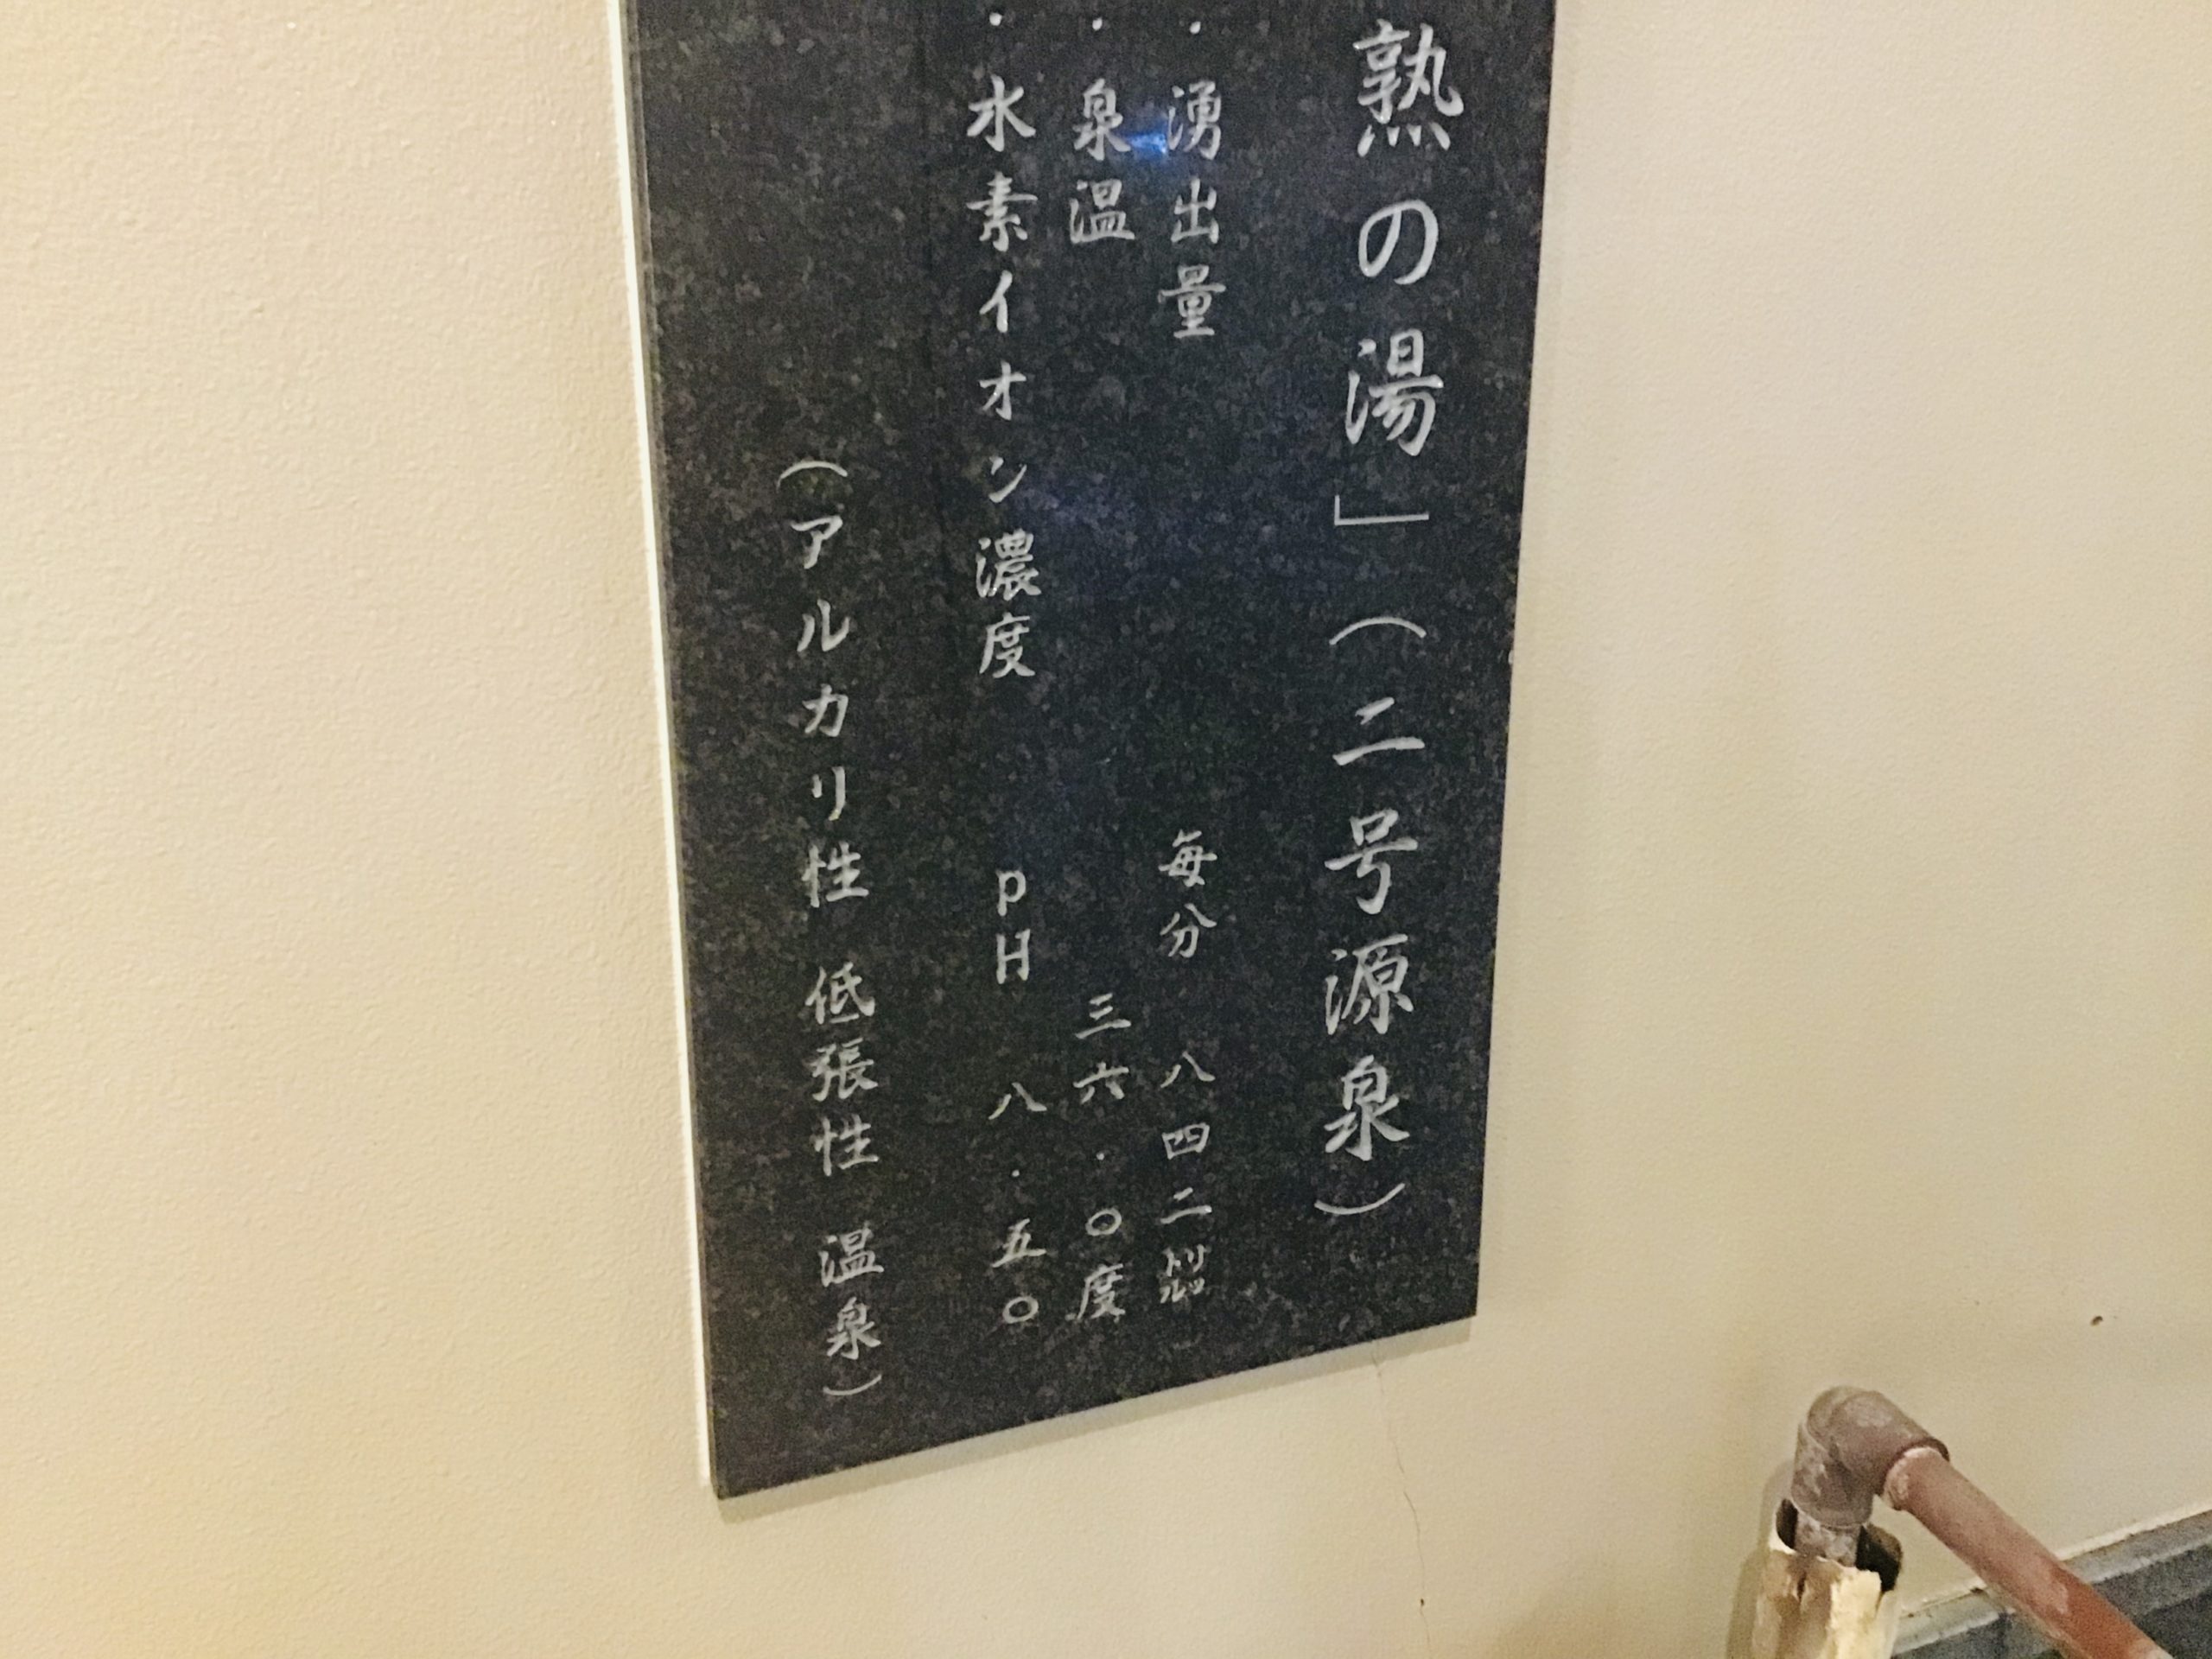 熟の湯」（二号源泉）
・湧出量 毎分 八四二㍑
・泉温 三六・〇度
・水素イオン濃度 pH 八・五〇
（アルカリ性 低張性 温泉）